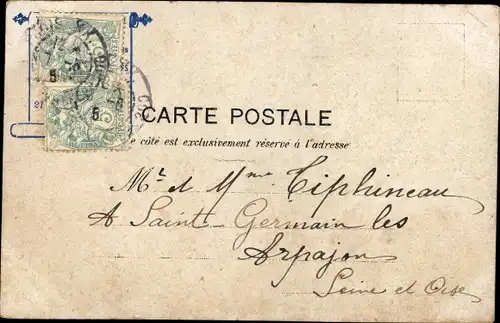 CARTE POSTALE
e côté est exclusivement réservé à l'adresse
Mr. & Mme Tiphineau
A Saint Germain les
Arpajon
Seine et Oise